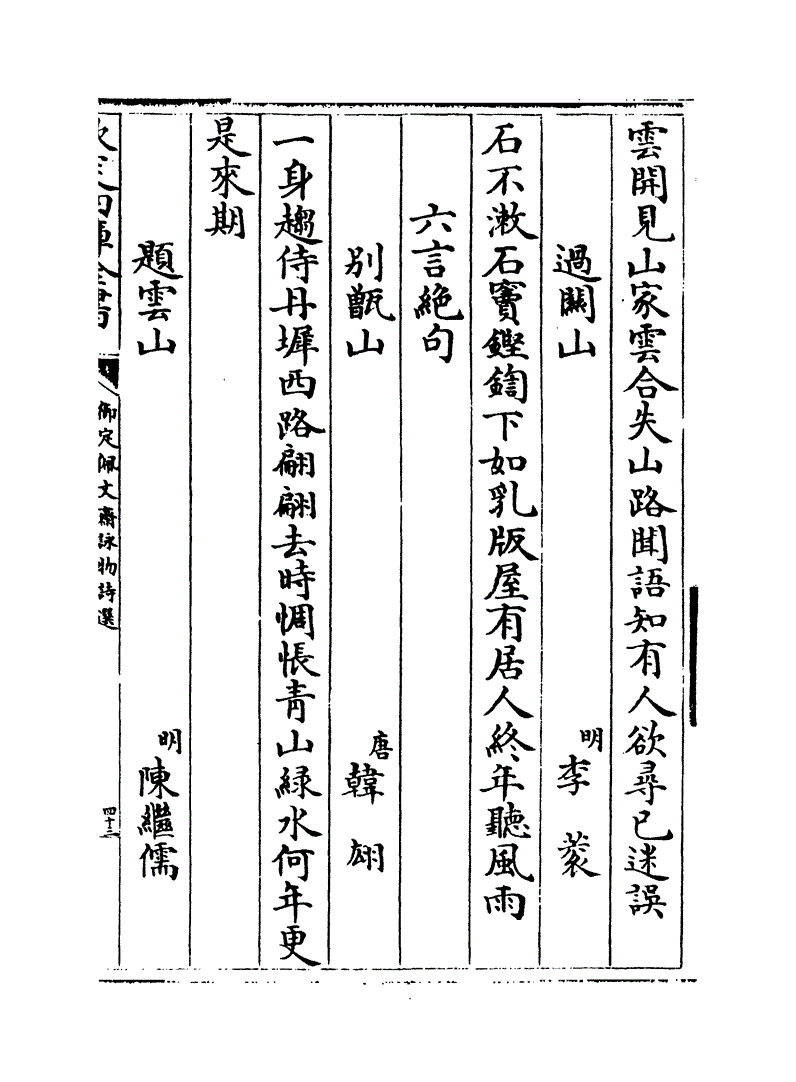 雲開見山家雲合失山路聞語知有人欲尋已迷誤
過關山 明 李蓘
石不漱石竇鏗鍧下如乳版屋有居人終年聽風雨
六言絶句
別甑山 唐 韓翃
一身趨侍丹墀西路翩翩去時惆悵青山緑水何年更
是來期
題雲山 明 陳繼儒
欽定四庫全書 御定佩文齋詠物詩選 四十三